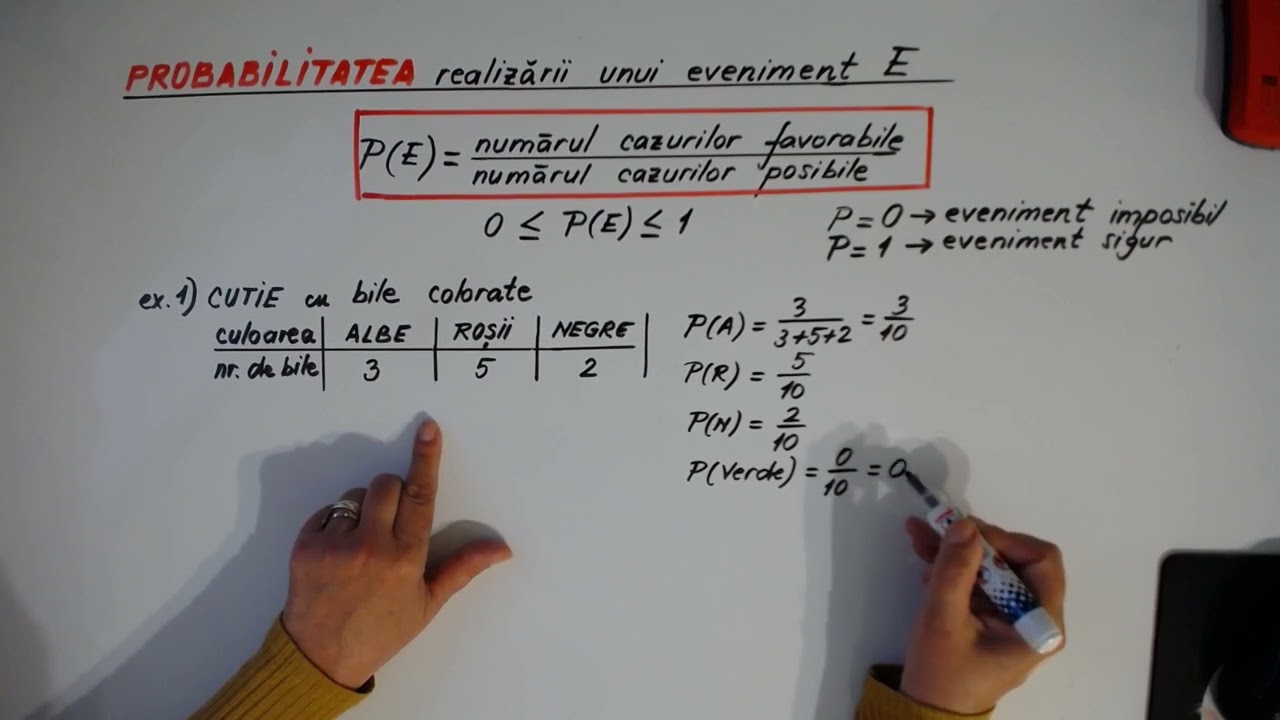 PROBABILITATEA realizării unui eveniment E
P(E) = numărul cazurilor favorabile
numărul cazurilor posibile
0 ≤ P(E) ≤ 1
P = 0 → eveniment imposibil
P = 1 → eveniment sigur
ex. 1) CUTIE cu bile colorate
culoarea ALBE ROȘII NEGRE
nr. de bile 3 5 2
P(A) = 3/3+5+2 = 3/10
P(R) = 5/10
P(N) = 2/10
P(Verde) = 0/10 = 0